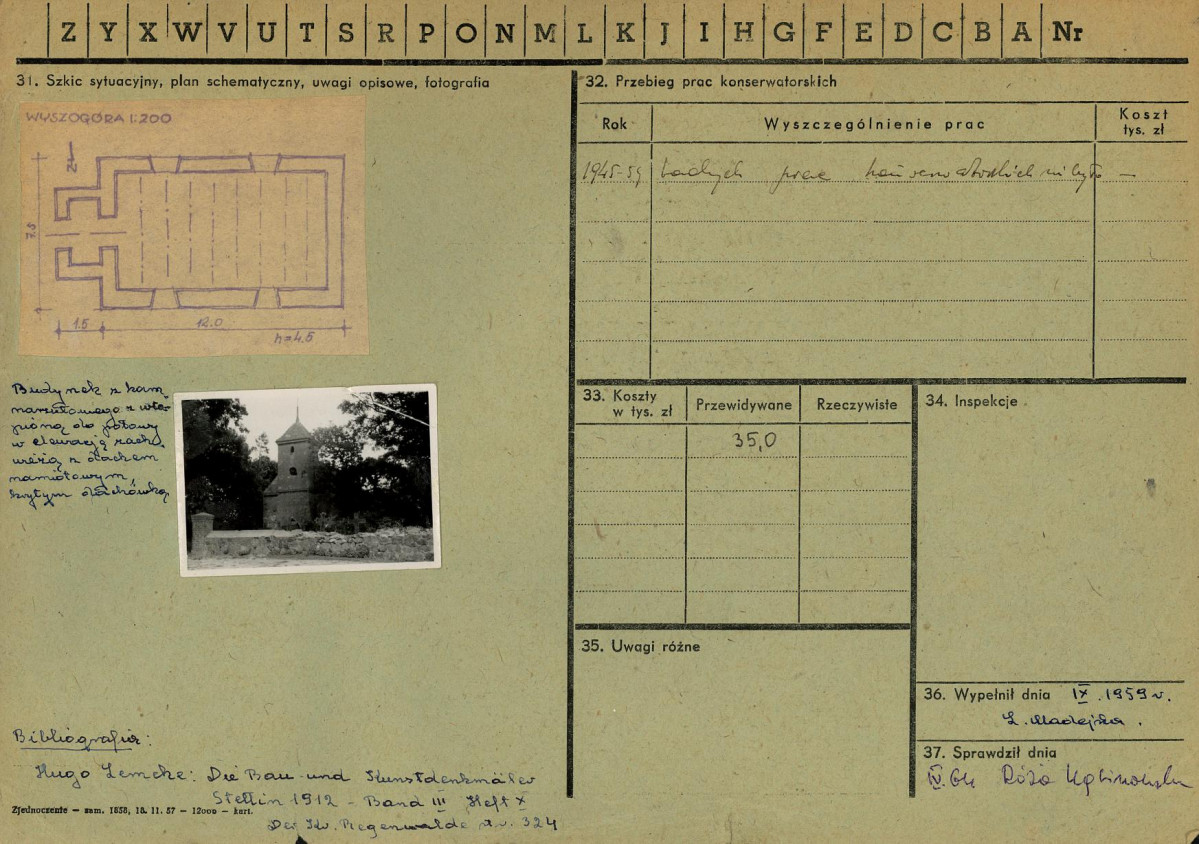 Z Y X W V U T S R P O N M L K J I H G F E D C B A Nr
31. Szkic sytuacyjny, plan schematyczny, uwagi opisowe, fotografia
WYSZOGÓRA 1:200
7.5
1.5 12.0
h=4.5
Budynek z kam.
narzutowego z wto-
pioną do połowy
w elewację zach.
wieżą z dachem
namiotowym,
krytym dachówką.
Bibliografia:
Hugo Lemcke: Die Bau- und Kunstdenkmäler
Stettin 1912 - Band III Heft X
Der Kr. Regenwalde 324
Zjednoczenie — zam. 1858, 18. 11. 57 — 12000 — kart.
32. Przebieg prac konserwatorskich
Rok Wyszczególnienie prac Koszt
tys. zł
1945-59 żadnych prac konserwatorskich nie było —
33. Koszty
w tys. zł Przewidywane Rzeczywiste
35,0
34. Inspekcje
35. Uwagi różne
36. Wypełnił dnia IX.1959 r.
L. Madejska.
37. Sprawdził dnia
IV.64 Róża